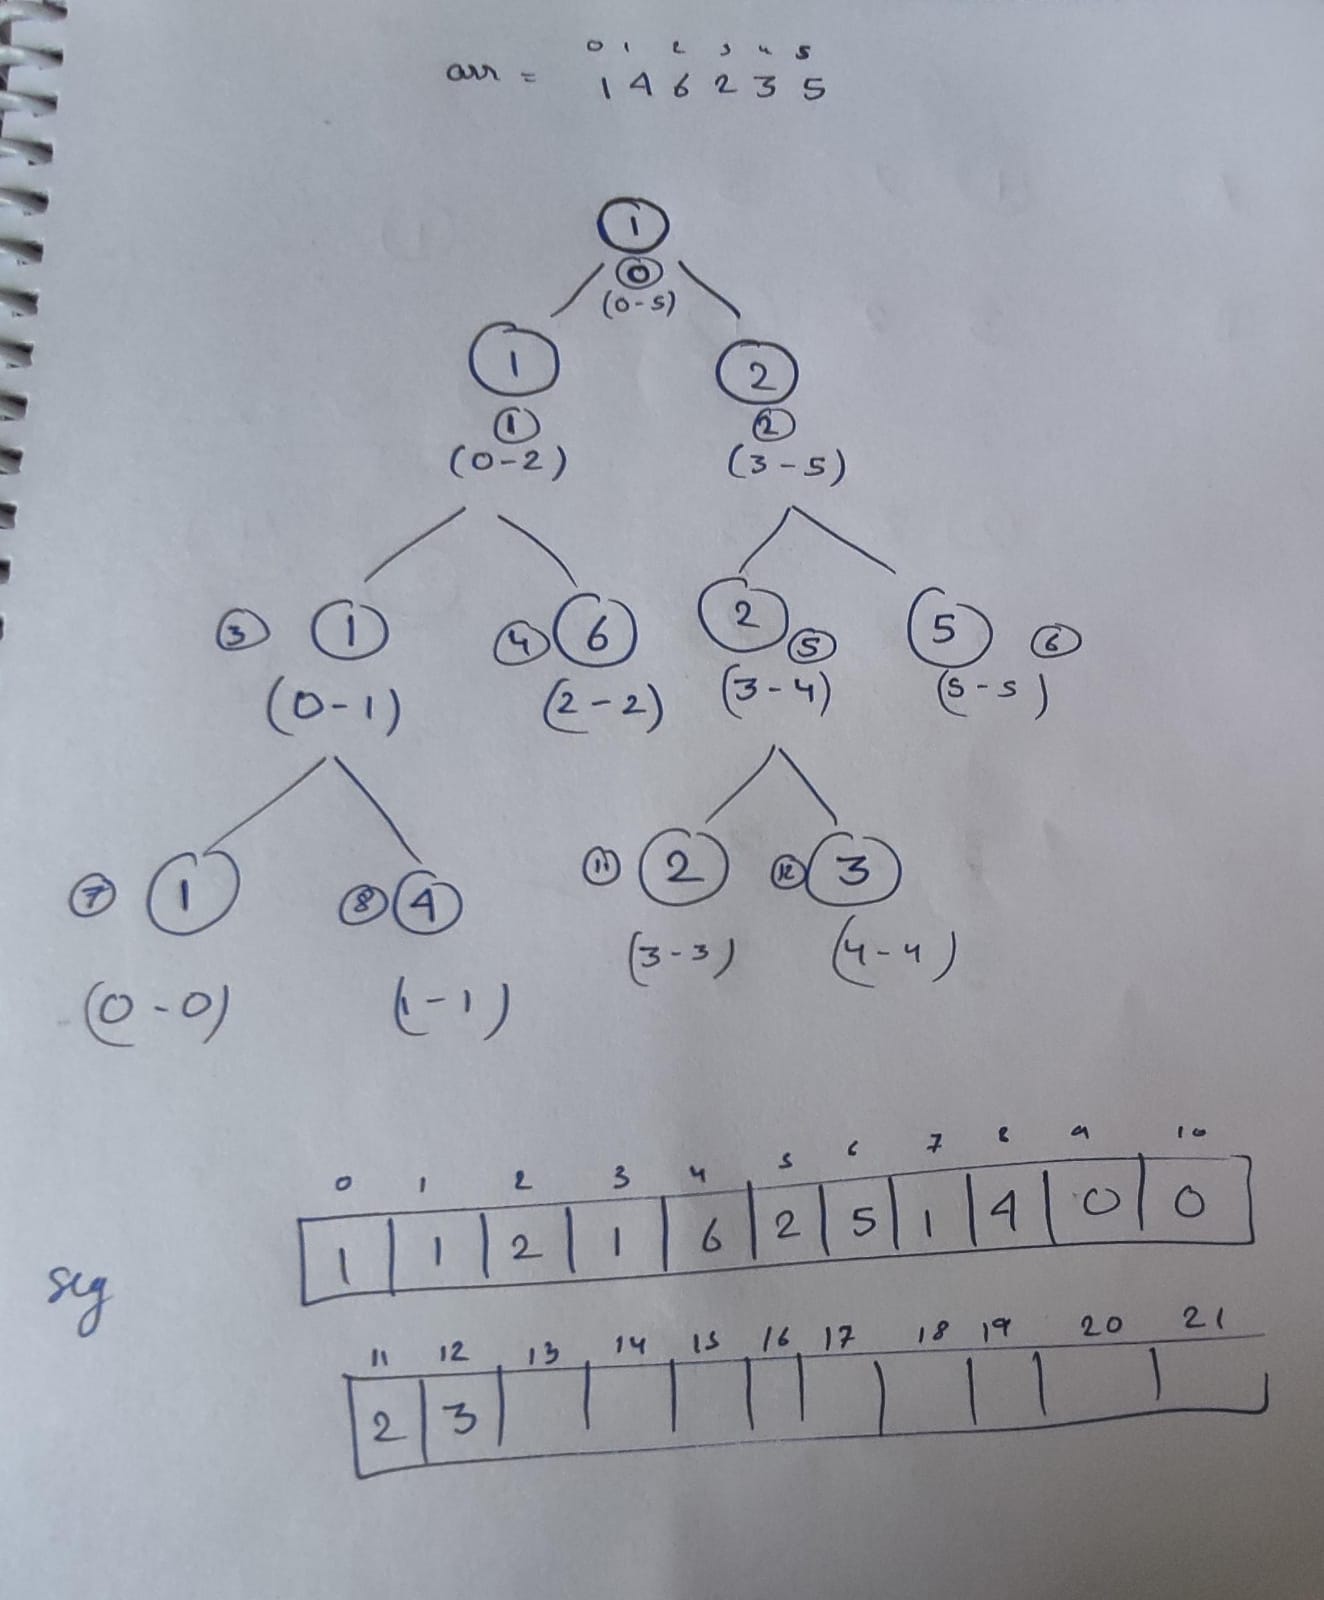 0 1 2 3 4 5
arr = 1 4 6 2 3 5
1
0
(0-5)
1 2
1 2
(0-2) (3-5)
3 1 4 6 2 5 5 6
(0-1) (2-2) (3-4) (5-5)
7 1 8 4 11 2 12 3
(0-0) (1-1) (3-3) (4-4)
0 1 2 3 4 5 6 7 8 9 10
1 1 2 1 6 2 5 1 4 0 0
seg
11 12 13 14 15 16 17 18 19 20 21
2 3